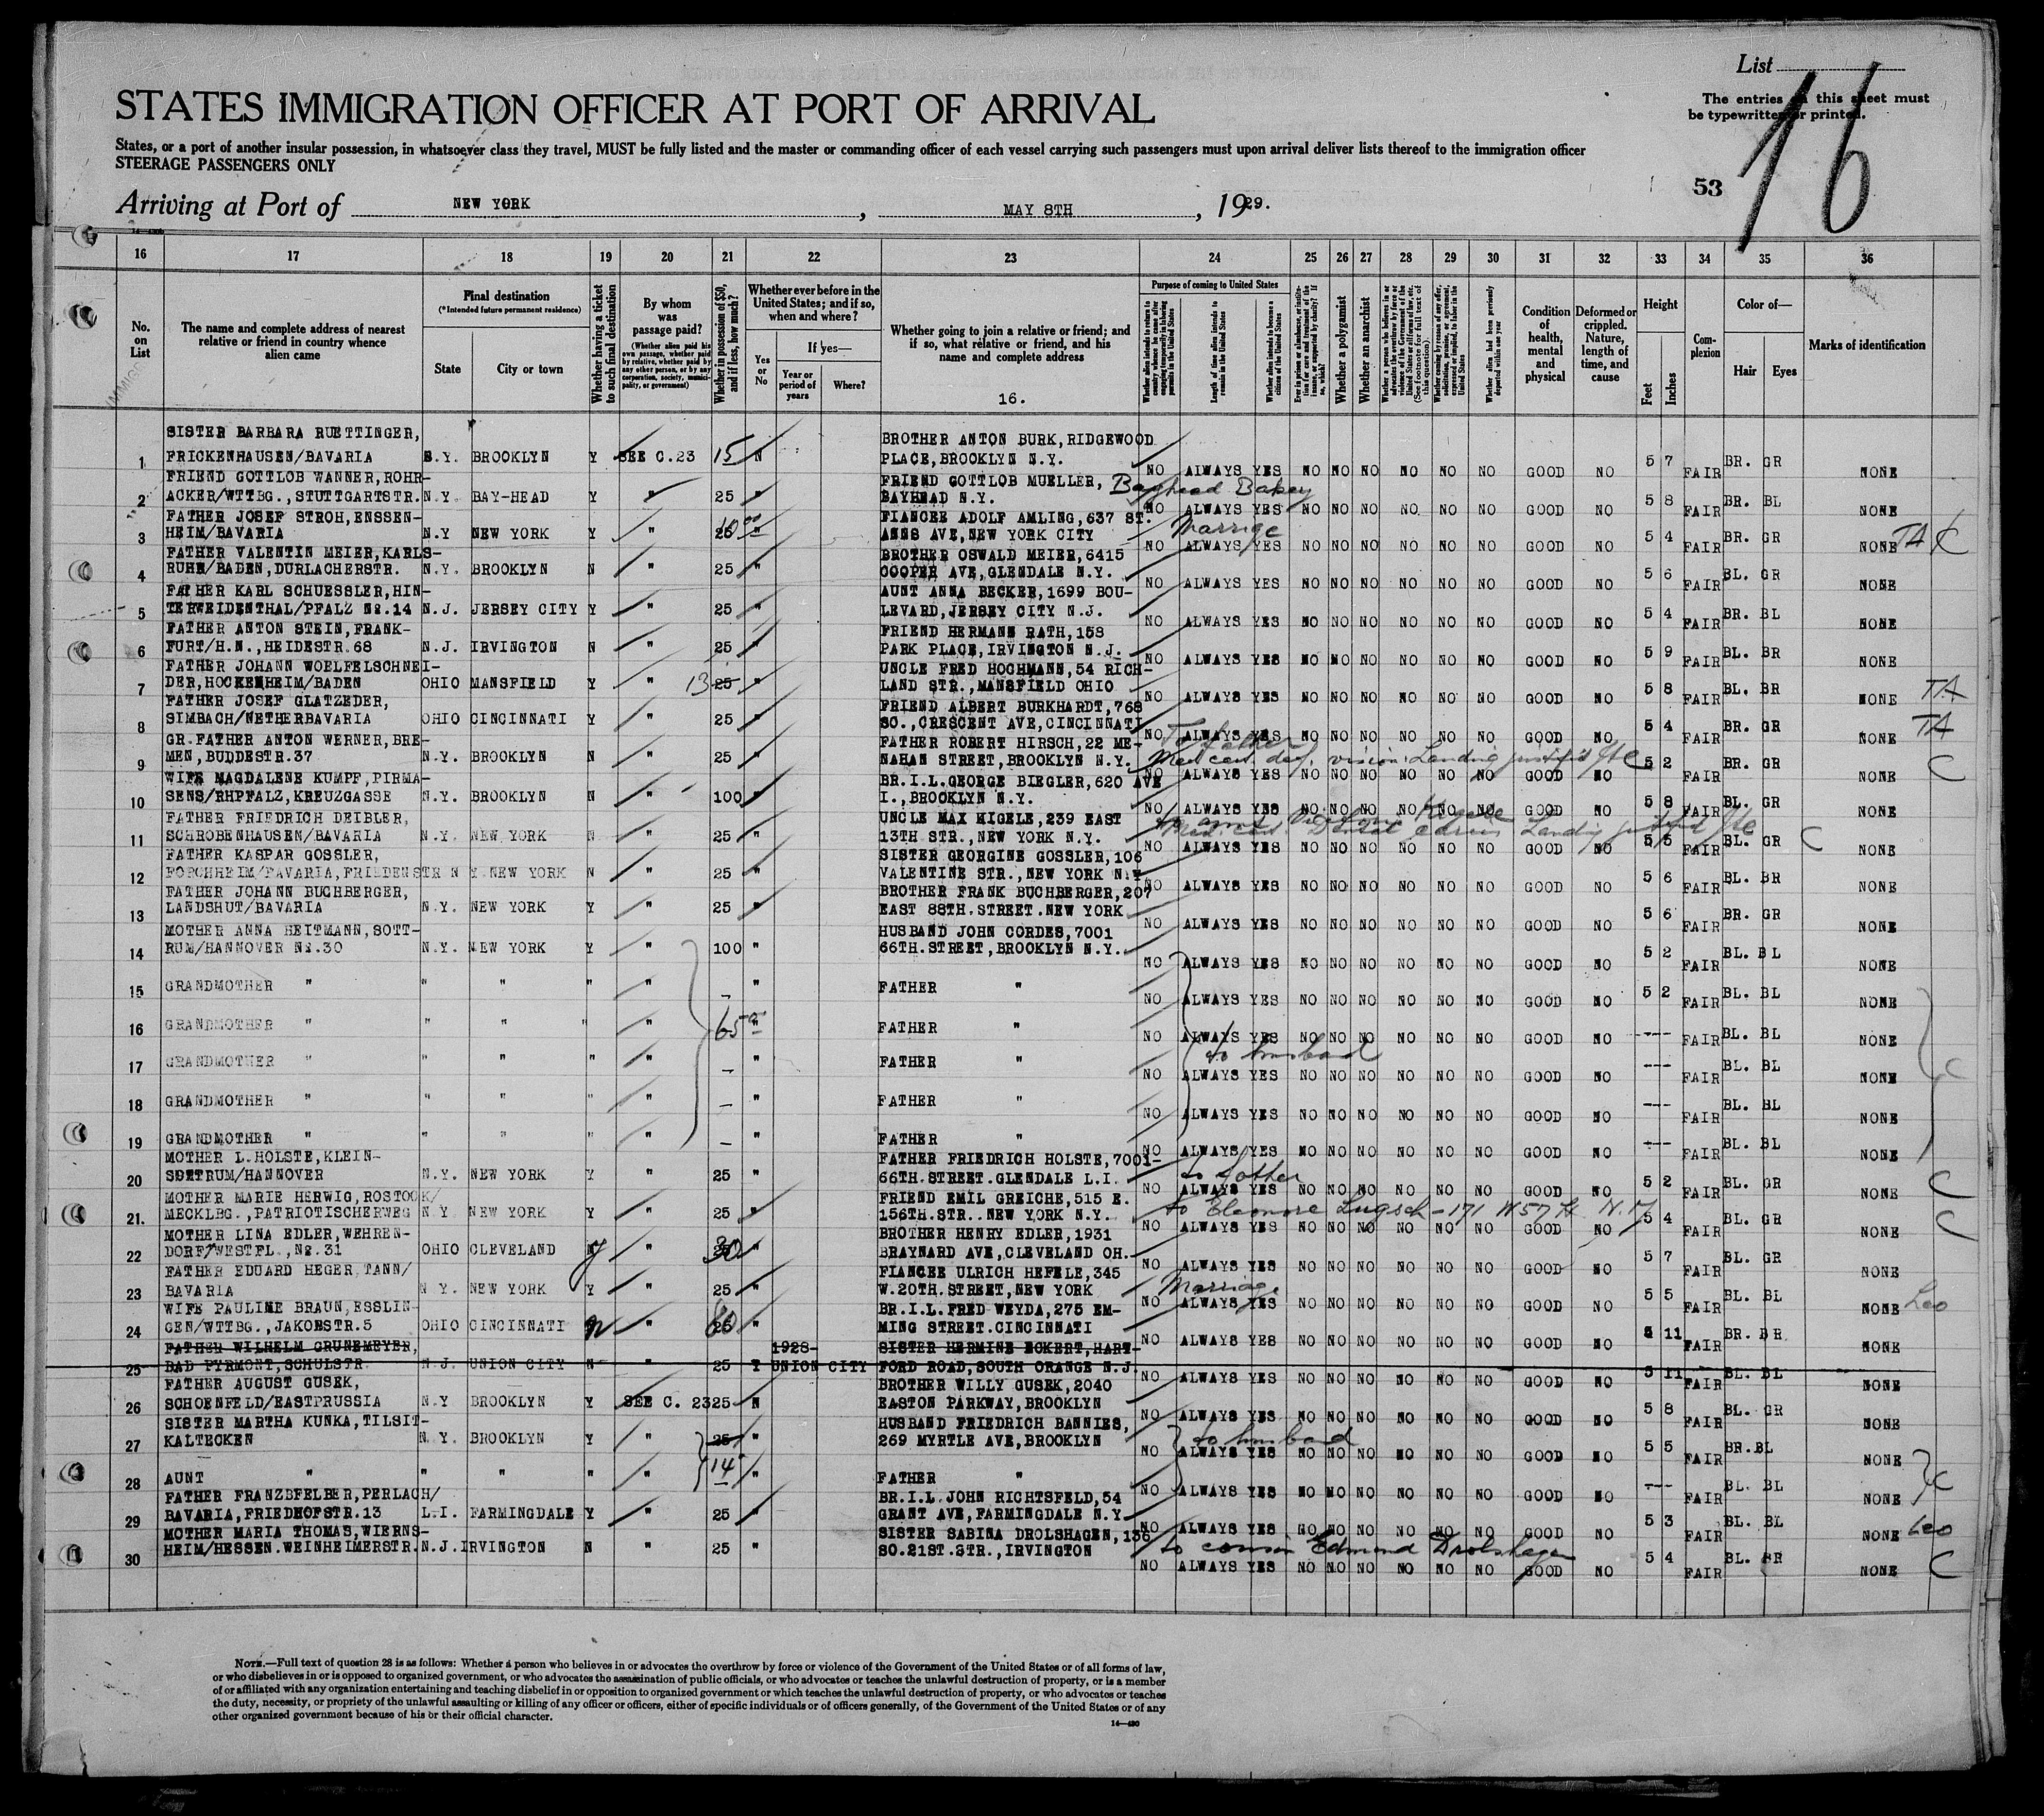 List
The entries on this sheet must
be typewritten or printed.
16
STATES IMMIGRATION OFFICER AT PORT OF ARRIVAL
States, or a port of another insular possession, in whatsoever class they travel, MUST be fully listed and the master or commanding officer of each vessel carrying such passengers must upon arrival deliver lists thereof to the immigration officer
STEERAGE PASSENGERS ONLY
53
Arriving at Port of NEW YORK, MAY 8TH, 1929.
16 17 18 19 20 21 22 23 24 25 26 27 28 29 30 31 32 33 34 35 36
No. on List
The name and complete address of nearest relative or friend in country whence alien came
Final destination
(*Intended future permanent residence)
State
City or town
Whether having a ticket to such final destination
By whom was passage paid?
(Whether alien paid his own passage, whether paid by relative, whether paid by any other person, or by any corporation, society, municipality, or government)
Whether in possession of $50, and if less, how much?
Whether ever before in the United States; and if so, when and where?
Yes or No
If yes—
Year or period of years
Where?
Whether going to join a relative or friend; and if so, what relative or friend, and his name and complete address
16.
Purpose of coming to United States
Length of time alien intends to remain in the United States
Whether alien intends to become a citizen of the United States
Whether a polygamist
Whether an anarchist
Whether alien had been previously deported within one year
Condition of health, mental and physical
Deformed or crippled. Nature, length of time, and cause
Height
Feet
Inches
Complexion
Color of—
Hair
Eyes
Marks of identification
SISTER BARBARA RUETTINGER, BROTHER ANTON BURK, RIDGEWOOD
1 FRICKENHAUSEN/BAVARIA N.Y. BROOKLYN Y SEE C.23 15 N PLACE, BROOKLYN N.Y. NO ALWAYS YES NO NO NO NO NO NO GOOD NO 5 7 FAIR BR. GR NONE
FRIEND GOTTLOB WANNER, ROHR- FRIEND GOTTLOB MUELLER, Bayhead Bakey
2 ACKER/WTTBG., STUTTGARTSTR. N.Y. BAY-HEAD Y " 25 " BAYHEAD N.Y. NO ALWAYS YES NO NO NO NO NO NO GOOD NO 5 8 FAIR BR. BL NONE
FATHER JOSEF STROH, ENSSEN- FIANCEE ADOLF AMLING, 637 ST. Marrige
3 HEIM/BAVARIA N.Y NEW YORK Y " 25 " ANNS AVE, NEW YORK CITY NO ALWAYS YES NO NO NO NO NO NO GOOD NO 5 4 FAIR BR. GR NONE TA C
FATHER VALENTIN MEIER, KARLS- BROTHER OSWALD MEIER, 6415
4 RUHE/BADEN, DURLACHERSTR. N.Y. BROOKLYN N " 25 " COOPER AVE, GLENDALE N.Y. NO ALWAYS YES NO NO NO NO NO NO GOOD NO 5 6 FAIR BL. GR NONE
FATHER KARL SCHUESSLER, HIN- AUNT ANNA BECKER, 1699 BOU-
5 TERWEIDENTHAL/PFALZ No.14 N.J. JERSEY CITY Y " 25 " LEVARD, JERSEY CITY N.J. NO ALWAYS YES NO NO NO NO NO NO GOOD NO 5 4 FAIR BR. BL NONE
FATHER ANTON STEIN, FRANK- FRIEND HERMANN RATH, 158
6 FURT/H.N., HEIDESTR.68 N.J. IRVINGTON N " 25 " PARK PLACE, IRVINGTON N.J. NO ALWAYS YES NO NO NO NO NO NO GOOD NO 5 9 FAIR BL. BR NONE
FATHER JOHANN WOELFELSCHNEI- UNCLE FRED HOCHMANN, 54 RICH-
7 DER, HOCKENHEIM/BADEN OHIO MANSFIELD Y " 13 25 " LAND STR., MANSFIELD OHIO NO ALWAYS YES NO NO NO NO NO NO GOOD NO 5 8 FAIR BL. BR NONE TA
FATHER JOSEF GLATZEDER, FRIEND ALBERT BURKHARDT, 768
8 SIMBACH/NETHERBAVARIA OHIO CINCINNATI Y " 25 " SO., CRESCENT AVE, CINCINNATI NO ALWAYS YES NO NO NO NO NO NO GOOD NO 5 4 FAIR BR. GR NONE TA
GR.FATHER ANTON WERNER, BRE- FATHER ROBERT HIRSCH, 22 ME- To father
9 MEN, BUDDESTR.37 N.Y. BROOKLYN N " 25 " NAHAN STREET, BROOKLYN N.Y. Med cert. def. vision. Landing justified NO ALWAYS YES NO NO NO NO NO NO GOOD NO 5 2 FAIR BR. GR NONE C
WIFE MAGDALENE KUMPF, PIRMA- BR.I.L.GEORGE BIEGLER, 620 AVE
10 SENS/RHPFALZ, KREUZGASSE N.Y. BROOKLYN N " 100 " I., BROOKLYN N.Y. NO ALWAYS YES NO NO NO NO NO NO GOOD NO 5 8 FAIR BL. GR NONE
FATHER FRIEDRICH DEIBLER, UNCLE MAX HIGELE, 239 EAST
11 SCHROBENHAUSEN/BAVARIA N.Y. NEW YORK N " 25 " 13TH STR., NEW YORK N.Y. NO ALWAYS YES NO NO NO NO NO NO GOOD NO 5 5 FAIR BL. GR C NONE
FATHER KASPAR GOSSLER, SISTER GEORGINE GOSSLER, 106
12 FORCHHEIM/BAVARIA, FRIEDENSTR N Y. NEW YORK N " 25 " VALENTINE STR., NEW YORK N.Y NO ALWAYS YES NO NO NO NO NO NO GOOD NO 5 6 FAIR BL. BR NONE
FATHER JOHANN BUCHBERGER, BROTHER FRANK BUCHBERGER, 207
13 LANDSHUT/BAVARIA N.Y. NEW YORK Y " 25 " EAST 88TH.STREET.NEW YORK NO ALWAYS YES NO NO NO NO NO NO GOOD NO 5 6 FAIR BR. GR NONE
MOTHER ANNA HEITMANN, SOTT- HUSBAND JOHN CORDES, 7001
14 RUM/HANNOVER No.30 N.Y. NEW YORK Y " 100 " 66TH.STREET, BROOKLYN N.Y. NO ALWAYS YES NO NO NO NO NO NO GOOD NO 5 2 FAIR BL. BL NONE
15 GRANDMOTHER " " " " " — " FATHER " NO ALWAYS YES NO NO NO NO NO NO GOOD NO 5 2 FAIR BL. BL NONE
16 GRANDMOTHER " " " " " 65 " FATHER " NO ALWAYS YES NO NO NO NO NO NO GOOD NO --- FAIR BL. BL NONE
17 GRANDMOTHER " " " " " — " FATHER " to husband NO ALWAYS YES NO NO NO NO NO NO GOOD NO --- FAIR BL. BL NONE C
18 GRANDMOTHER " " " " " — " FATHER " NO ALWAYS YES NO NO NO NO NO NO GOOD NO --- FAIR BL. BL NONE
19 GRANDMOTHER " " " " " — " FATHER " NO ALWAYS YES NO NO NO NO NO NO GOOD NO --- FAIR BL. BL NONE
MOTHER L.HOLSTE, KLEIN- FATHER FRIEDRICH HOLSTE, 7001-
20 SOTTRUM/HANNOVER N.Y. NEW YORK Y " 25 " 66TH.STREET.GLENDALE L.I. to father NO ALWAYS YES NO NO NO NO NO NO GOOD NO 5 2 FAIR BL. GR NONE C
MOTHER MARIE HERWIG, ROSTOCK/ FRIEND EMIL GREICHE, 515 E.
21. MECKLBG., PATRIOTISCHERWEG N Y. NEW YORK Y " 25 " 156TH.STR..NEW YORK N.Y. to Eleonore Lugsch - 171 W 57 St N.Y NO ALWAYS YES NO NO NO NO NO NO GOOD NO 5 4 FAIR BL. GR NONE C
MOTHER LINA EDLER, WEHREN- BROTHER HENRY EDLER, 1931
22 DORF/WESTFL., No.31 OHIO CLEVELAND y " 30 " BRAYNARD AVE, CLEVELAND OH. NO ALWAYS YES NO NO NO NO NO NO GOOD NO 5 7 FAIR BL. GR NONE
FATHER EDUARD HEGER, TANN/ FIANCEE ULRICH HEFELE, 345
23 BAVARIA N Y. NEW YORK Y " 25 " W.20TH.STREET, NEW YORK Marriage NO ALWAYS YES NO NO NO NO NO NO GOOD NO 5 5 FAIR BL. BL NONE Leo
WIFE PAULINE BRAUN, ESSLIN- BR.I.L.FRED WEYDA, 275 EM-
24 GEN/WTTBG., JAKOBSTR.5 OHIO CINCINNATI n " 60 " MING STREET.CINCINNATI NO ALWAYS YES NO NO NO NO NO NO GOOD NO 5 11 FAIR BR. BR NONE
FATHER WILHELM GRUNEMEYER, 1928- SISTER HERMINE ECKERT, HART-
25 BAD PYRMONT, SCHULSTR. N.J. UNION CITY N " 25 Y UNION CITY FORD ROAD, SOUTH ORANGE N.J. NO ALWAYS YES NO NO NO NO NO NO GOOD NO 5 11 FAIR BL. BL NONE
FATHER AUGUST GUSEK, BROTHER WILLY GUSEK, 2040
26 SCHOENFELD/EASTPRUSSIA N.Y BROOKLYN Y SEE C. 23 25 N EASTON PARKWAY, BROOKLYN NO ALWAYS YES NO NO NO NO NO NO GOOD NO 5 8 FAIR BL. GR NONE
SISTER MARTHA KUNKA, TILSIT- HUSBAND FRIEDRICH BANNIES,
27 KALTECKEN N.Y. BROOKLYN Y " 25 " 269 MYRTLE AVE, BROOKLYN to husband NO ALWAYS YES NO NO NO NO NO NO GOOD NO 5 5 FAIR BR. BL NONE
28 AUNT " " " " " 14 " FATHER " NO ALWAYS YES NO NO NO NO NO NO GOOD NO --- FAIR BL. BL NONE C
FATHER FRANZBFELBER, PERLACH/ BR.I.L.JOHN RICHTSFELD, 54
29 BAVARIA, FRIEDHOFSTR.13 L.I. FARMINGDALE Y " 25 " GRANT AVE, FARMINGDALE N.Y NO ALWAYS YES NO NO NO NO NO NO GOOD NO 5 3 FAIR BL. BL NONE Leo
MOTHER MARIA THOMAS, WIERNS- SISTER SABINA DROLSHAGEN, 136
30 HEIM/HESSEN.WEINHEIMERSTR. N.J. IRVINGTON N " 25 " SO.21ST.STR., IRVINGTON to cousin Edmund Drolshagen NO ALWAYS YES NO NO NO NO NO NO GOOD NO 5 4 FAIR BL. BR NONE C
NOTE.—Full text of question 28 is as follows: Whether a person who believes in or advocates the overthrow by force or violence of the Government of the United States or of all forms of law,
or who disbelieves in or is opposed to organized government, or who advocates the assassination of public officials, or who advocates or teaches the unlawful destruction of property, or is a member
of or affiliated with any organization entertaining and teaching disbelief in or opposition to organized government or which teaches the unlawful destruction of property, or who advocates or teaches
the duty, necessity, or propriety of the unlawful assaulting or killing of any officer or officers, either of specific individuals or of officers generally, of the Government of the United States or of any
other organized government because of his or their official character.
14—430